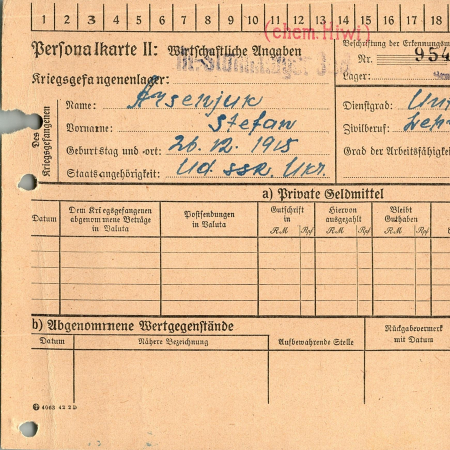 1 2 3 4 5 6 7 8 9 10 11 12 13 14 15 16 17 18
(chem. Hiwi)
Personalkarte II: Wirtschaftliche Angaben
Beschriftung der Erkennungsm
Nr. 954
Kriegsgefangenenlager:
Lager:
Des Kriegsgefangenen
Name: Arsenjuk
Vorname: Stefan
Geburtstag und -ort: 26. 12. 1915
Staatsangehörigkeit: Ud. SSR. Ukr.
Dienstgrad:
Zivilberuf:
Grad der Arbeitsfähigkeit
a) Private Geldmittel
Datum
Dem Kriegsgefangenen abgenommene Beträge in Valuta
Postsendungen in Valuta
Gutschrift in
RM Rpf
Hiervon ausgezahlt
RM Rpf
Bleibt Guthaben
RM Rpf
b) Abgenommene Wertgegenstände
Datum
Nähere Bezeichnung
Aufbewahrende Stelle
Rückgabevermerk mit Datum
4063 42 2 D